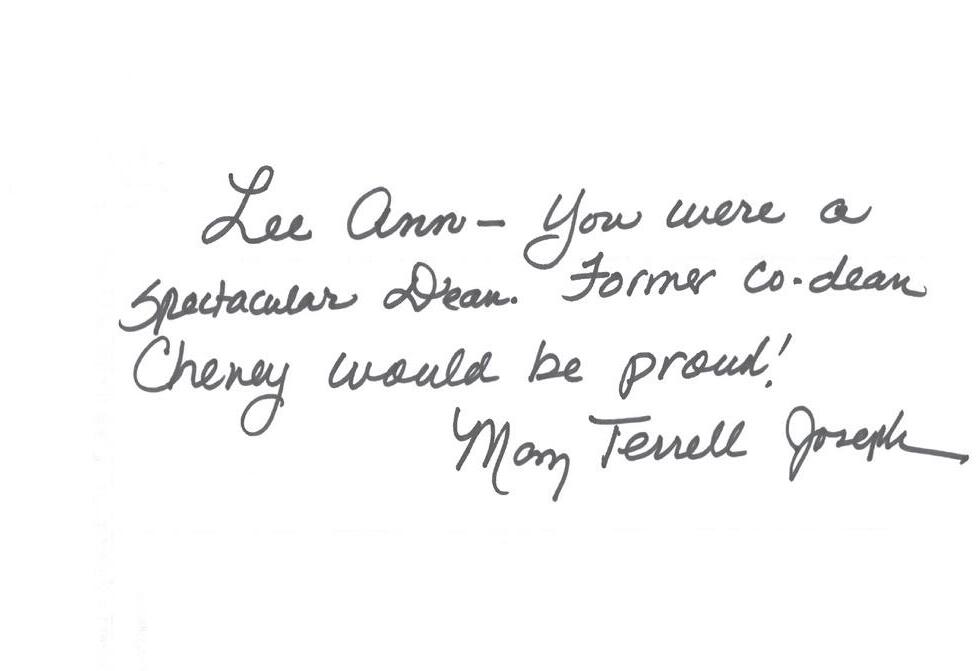 Lee Ann - You were a
spectacular Dean. Former co-dean
Cheney would be proud!
Mary Terrell Joseph